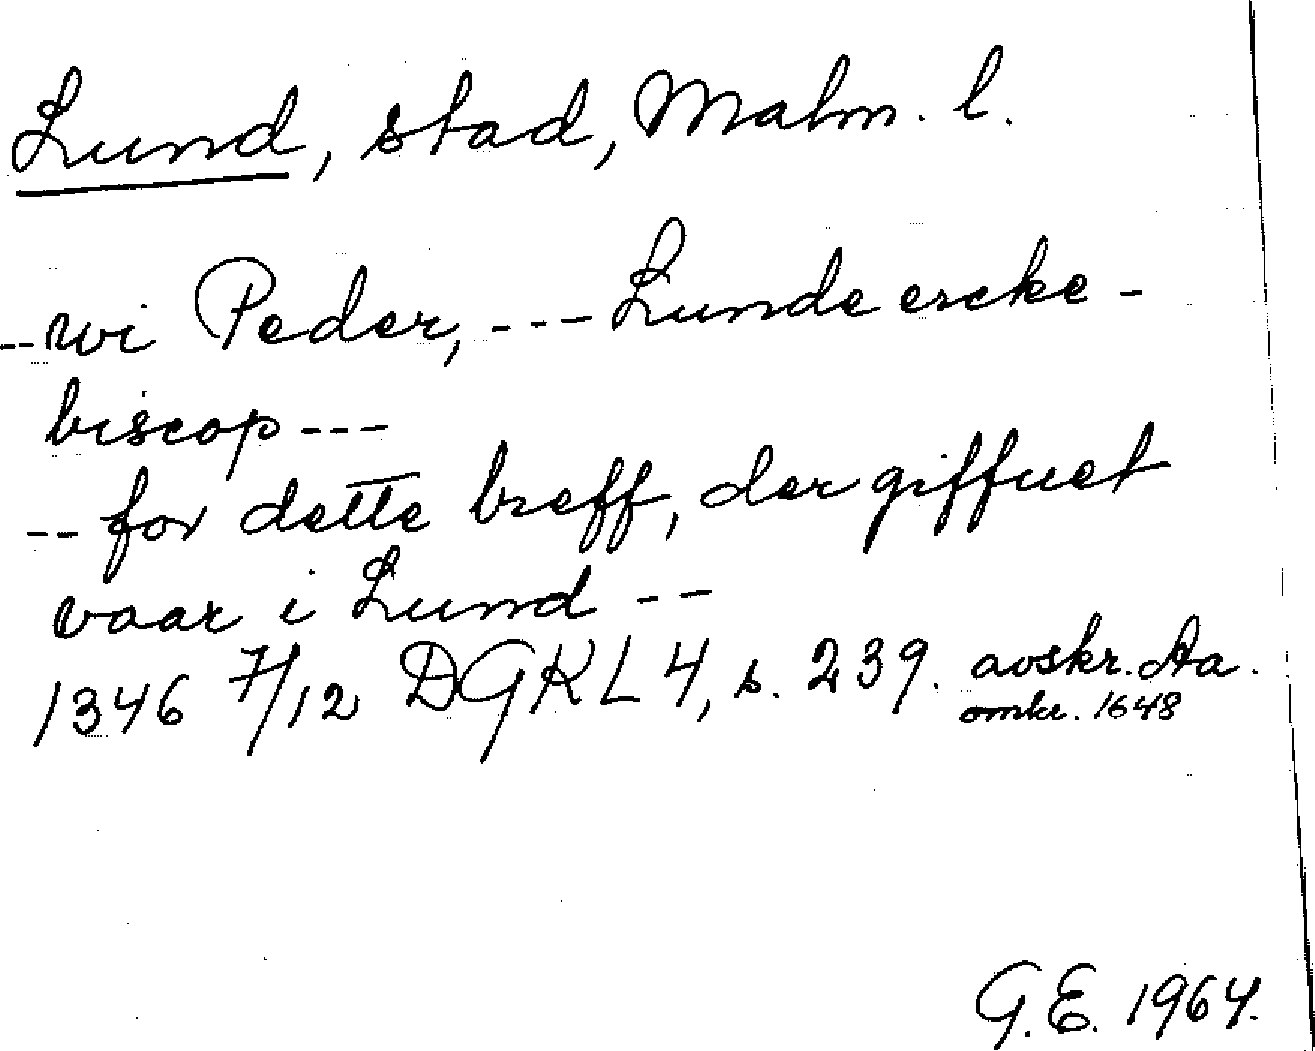 Lund, stad, Malm. l.
-- wi Peder, --- Lunde ercke-
biscop ---
-- for dette breff, der giffuet
vaar i Lund --
1346 7/12 DGKL 4, s. 239. avskr. Aa.
omkr. 1648
G.E. 1964.